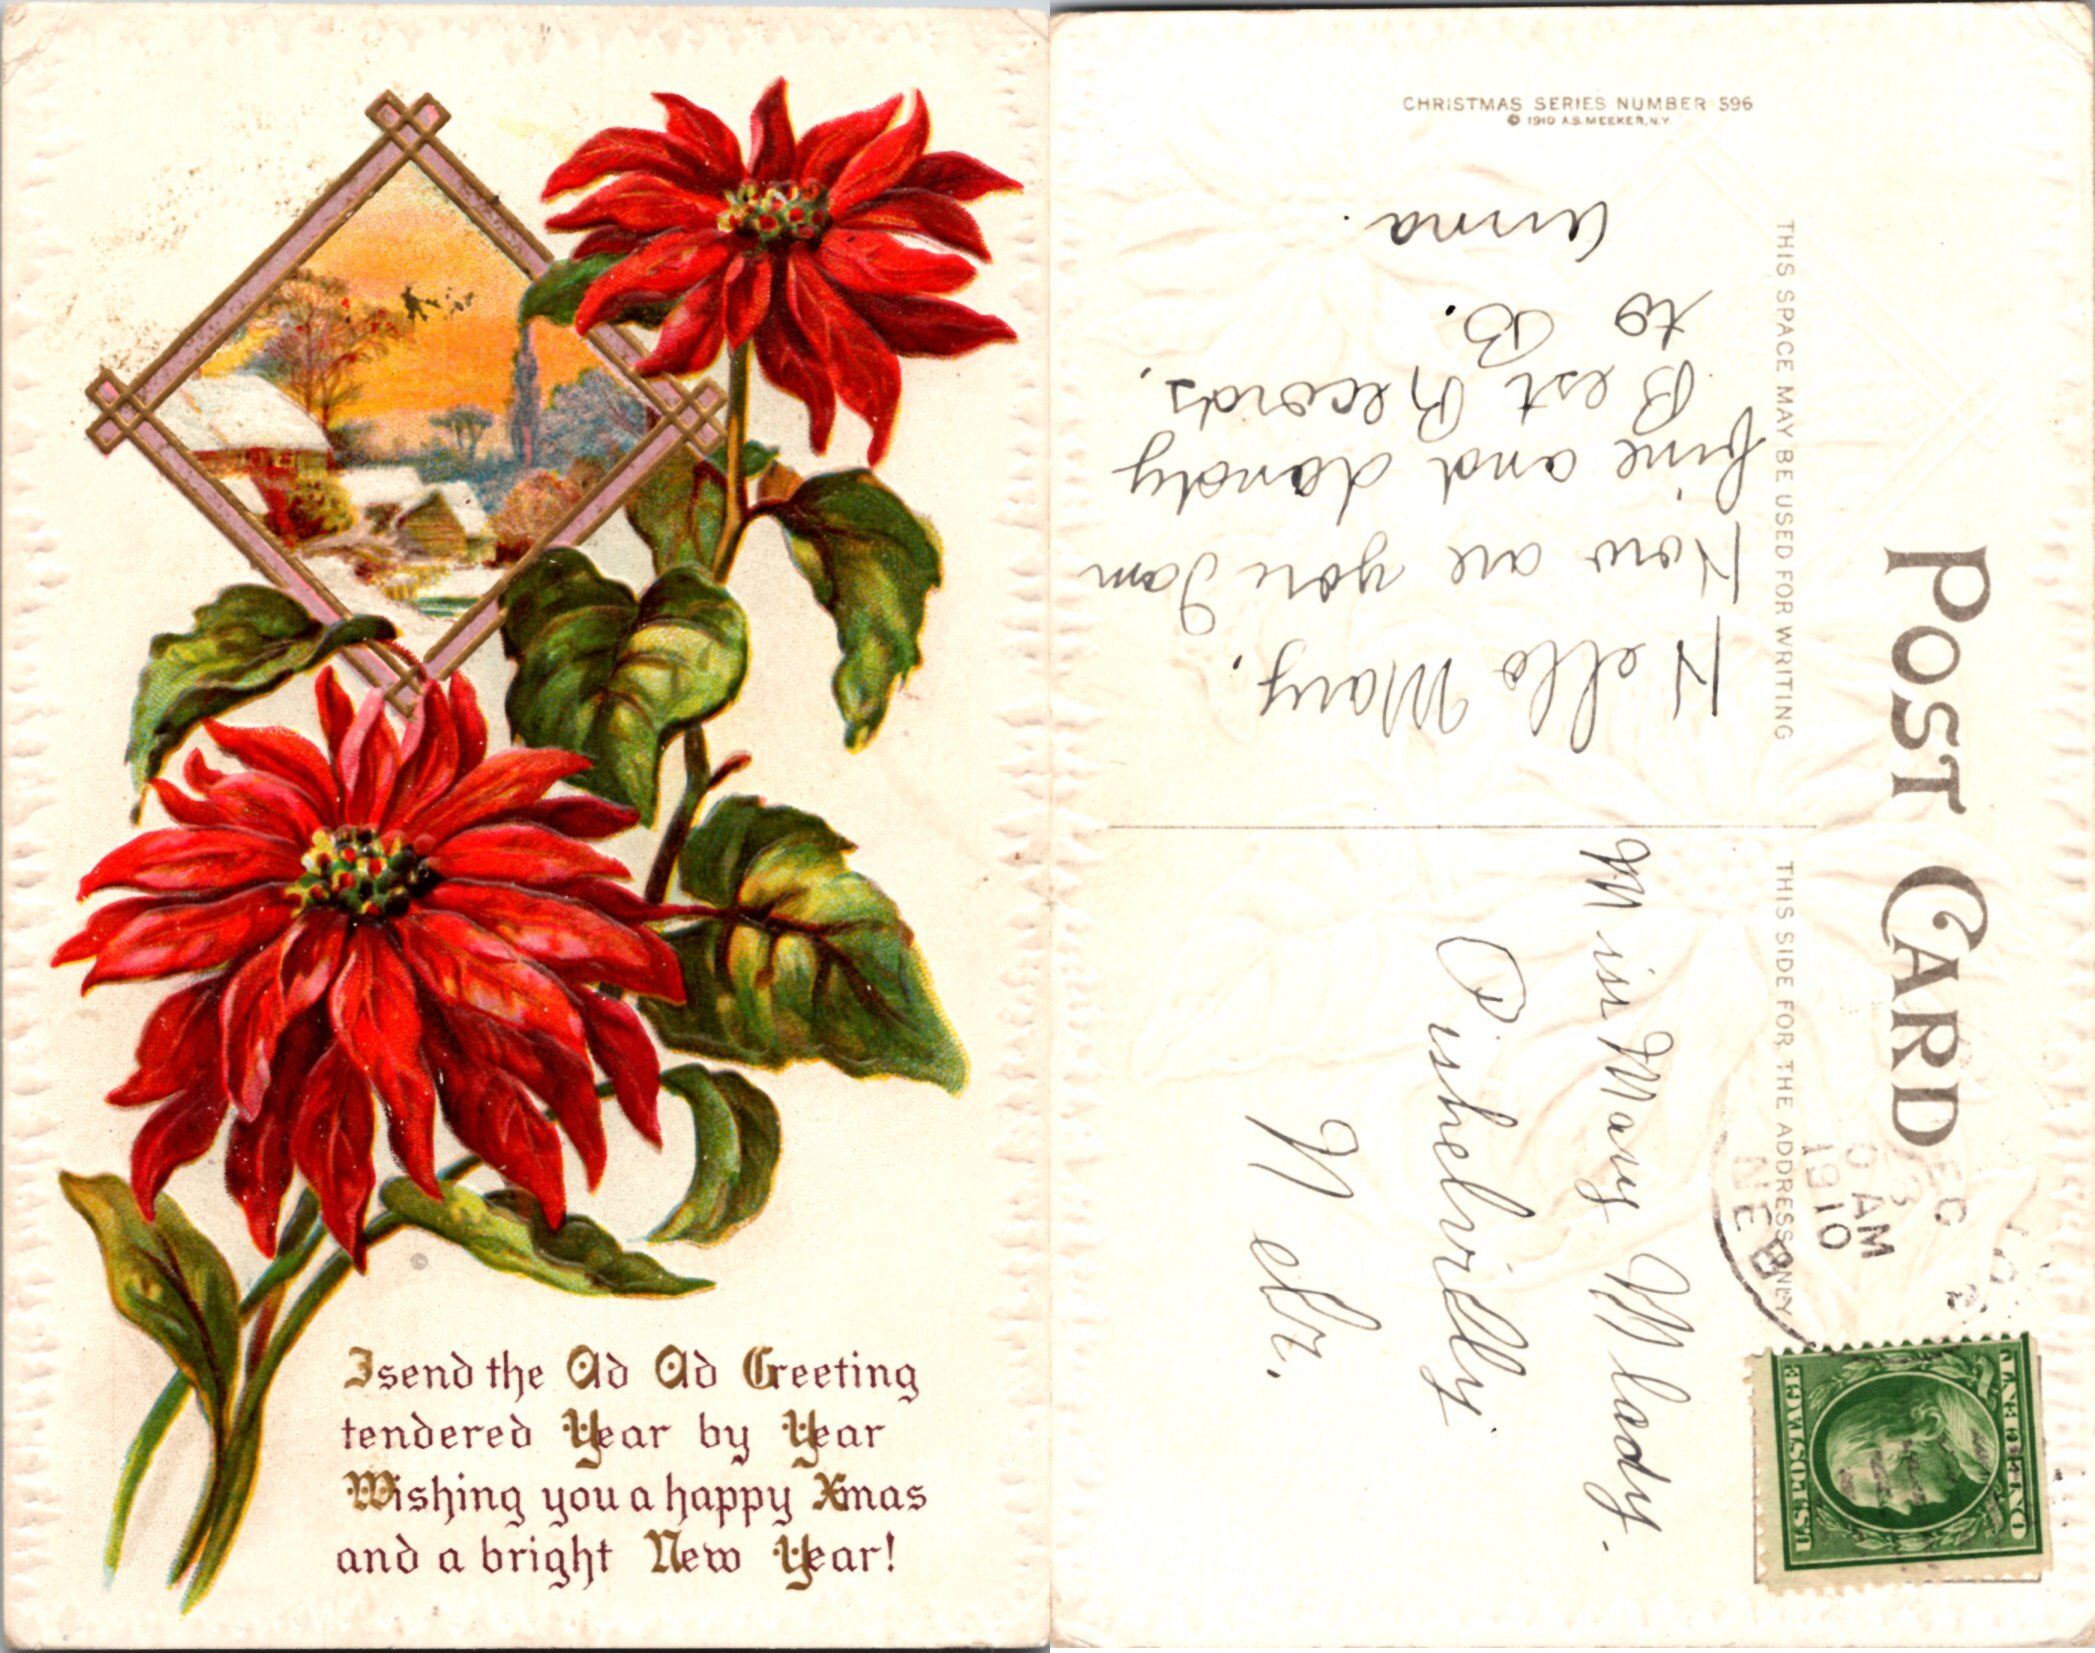 I send the Old Old Greeting
tendered Year by Year
Wishing you a happy Xmas
and a bright New Year!
CHRISTMAS SERIES NUMBER 596
© 1910 A.S. MEEKER, N.Y.
POST CARD
THIS SPACE MAY BE USED FOR WRITING
THIS SIDE FOR THE ADDRESS ONLY
Hello Mary.
How are you I am
fine and dandy
Best Records.
to B.
Anna.
Miss Mary Mlady.
Pishelville
Nebr.
AM
1910
NEB